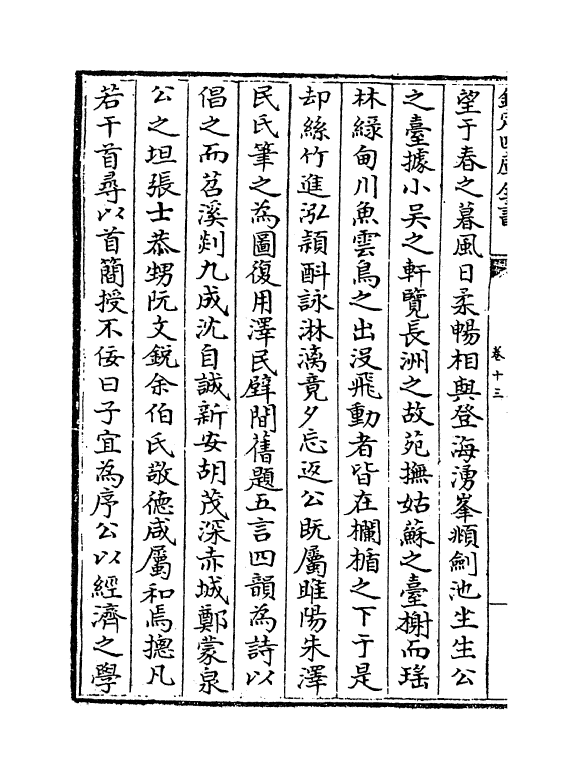 欽定四庫全書
卷十三
望于春之暮風日柔暢相與登海湧峯瀕劍池坐生公
之臺據小吴之軒覽長洲之故苑撫姑蘇之臺榭而瑶
林緑甸川魚雲鳥之出没飛動者皆在欄楯之下于是
却絲竹進泓頴酙詠淋漓竟夕忘返公既屬睢陽朱澤
民氏筆之為圖復用澤民壁間舊題五言四韻為詩以
倡之而苕溪剡九成沈自誠新安胡茂深赤城鄭蒙泉
公之坦張士恭甥阮文鋭余伯氏敬德咸屬和焉摠凡
若干首尋以首簡授不佞曰子宜為序公以經濟之學